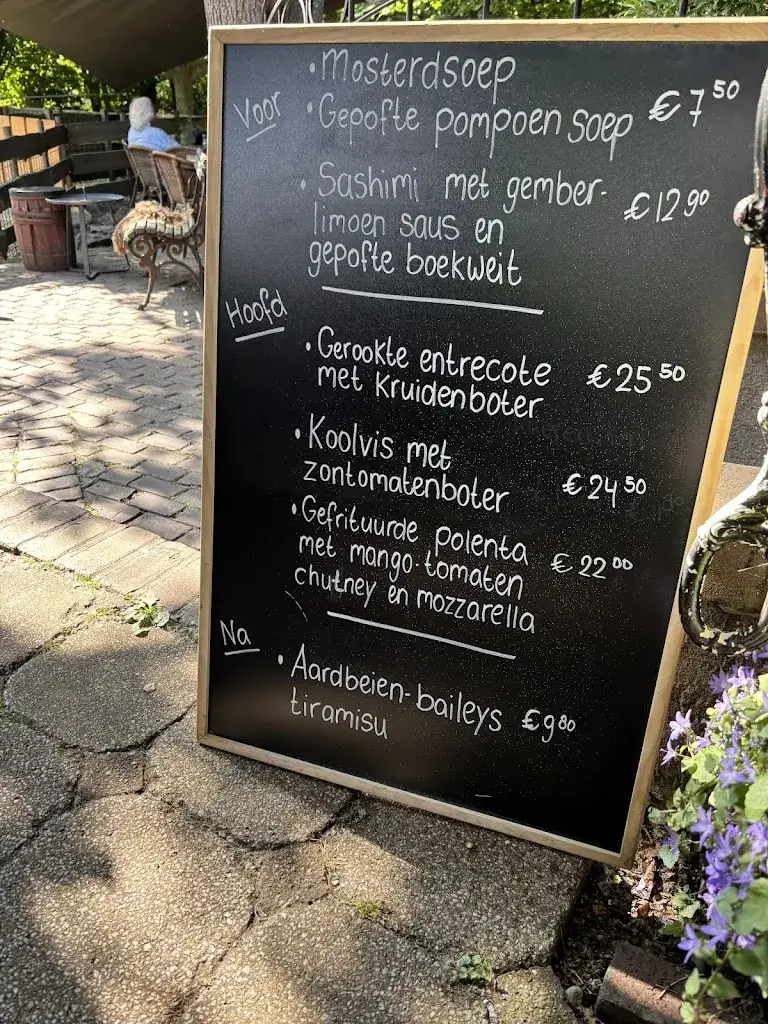 Voor
• Mosterdsoep
• Gepofte pompoen soep € 7 50
• Sashimi met gember- € 12 90
limoen saus en
gepofte boekweit
Hoofd
• Gerookte entrecote € 25 50
met kruidenboter
• Koolvis met
zontomatenboter € 24 50
• Gefrituurde polenta € 22 00
met mango-tomaten
chutney en mozzarella
Na
• Aardbeien-baileys € 9 80
tiramisu